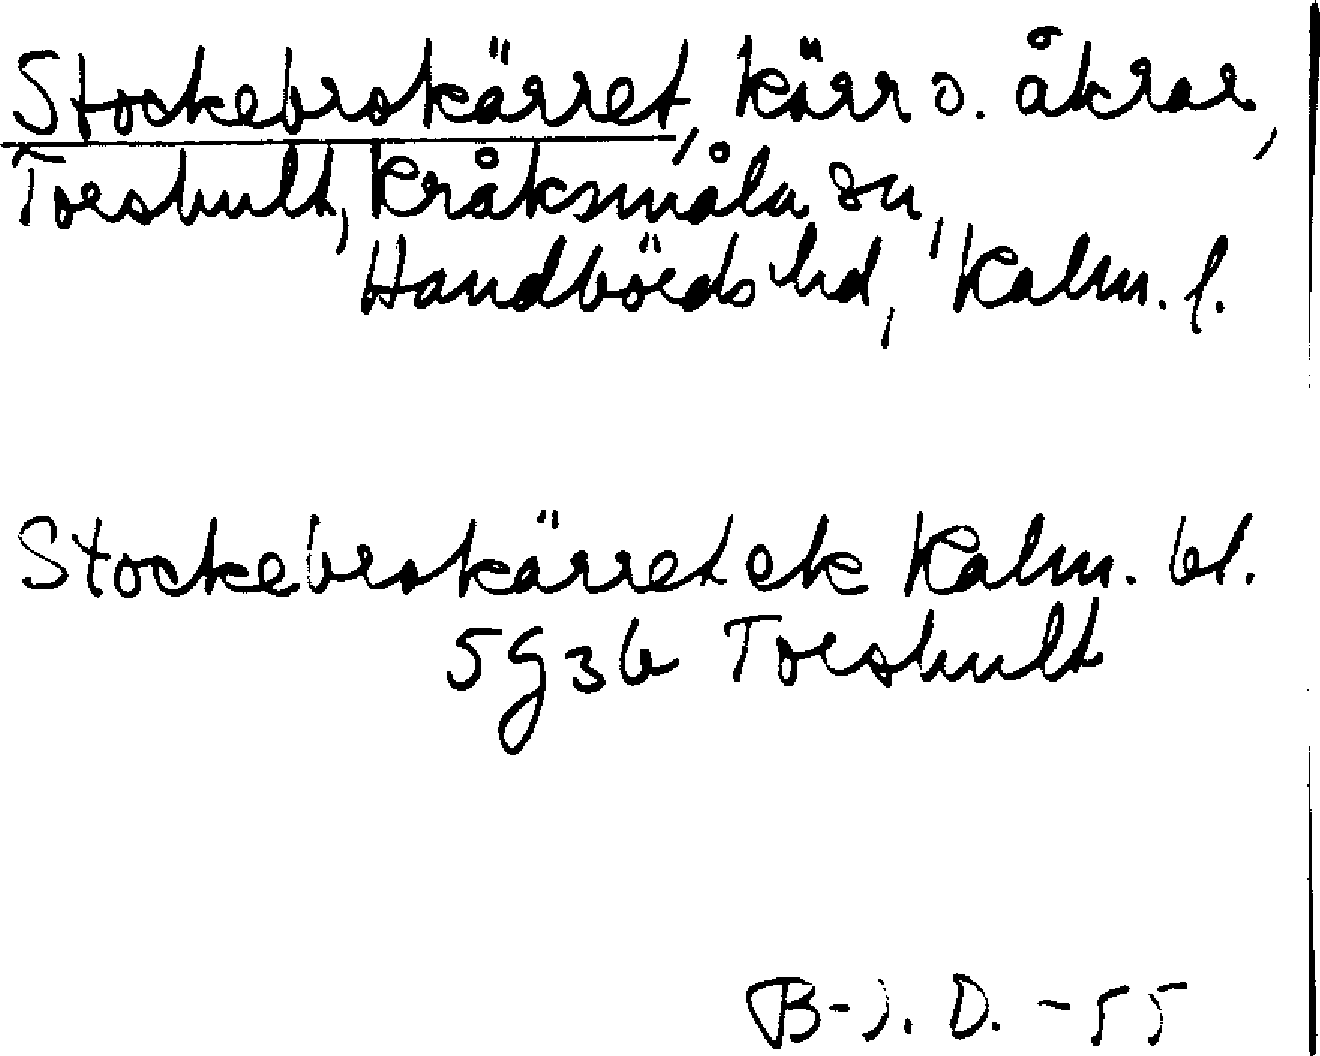 Stockebrokärret, kärr o. åkrar,
Torshult, Kråksmåla sn,
Handbörds hd, Kalm. l.
Stockebrokärret ek Kalm. bl.
5g3b Torshult
B-J. D. -55